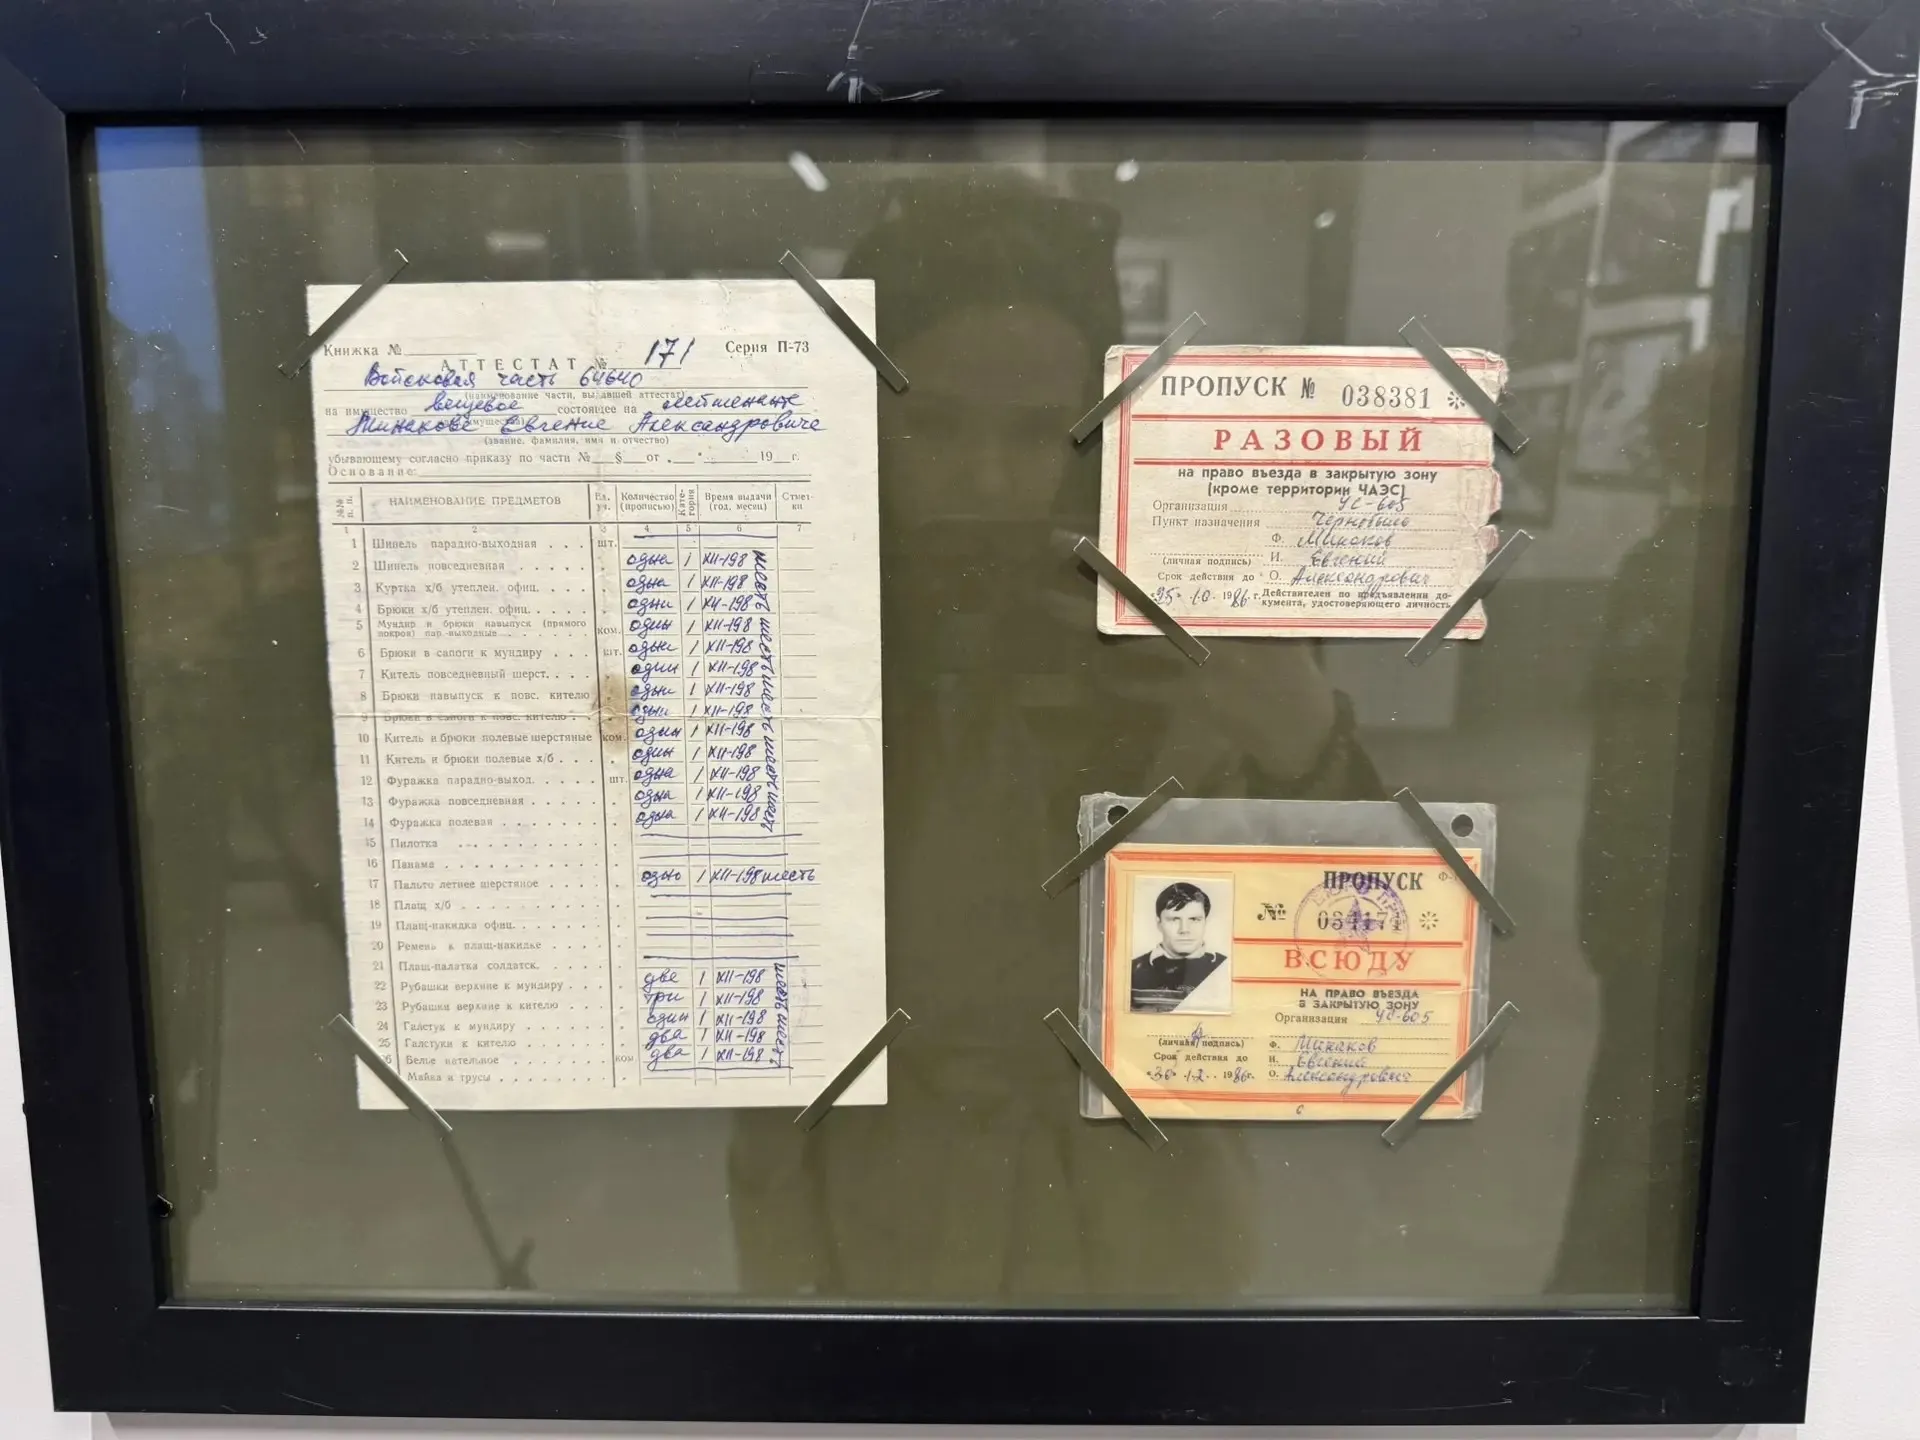 Книжка № Серия П-73
АТТЕСТАТ № 171
Войсковая часть 64640
(наименование части, выдавшей аттестат)
на имущество вещевое состоящее на лейтенанте
Минакове Евгение Александровиче
(звание, фамилия, имя и отчество)
убывающему согласно приказу по части № § от . " . 19 г.
Основание:
№№ п. п. НАИМЕНОВАНИЕ ПРЕДМЕТОВ Ед. Количество (прописью) Категория Время выдачи (год, месяц) Отметки
1 2 3 4 5 6 7
1 Шинель парадно-выходная . . . шт.
2 Шинель повседневная . . . . . одна 1 XII-198
3 Куртка х/б утеплен. офиц. . . . . одна 1 XII-198
4 Брюки х/б утеплен. офиц. . . . . одни 1 XII-198
5 Мундир и брюки навыпуск (прямого покроя) пар.-выходные . . . . . ком. один 1 XII-198
6 Брюки в сапоги к мундиру . . . шт. одни 1 XII-198
7 Китель повседневный шерст. . . . . один 1 XII-198
8 Брюки навыпуск к повс. кителю . одни 1 XII-198
9 Брюки в сапоги к повс. кителю . . одни 1 XII-198
10 Китель и брюки полевые шерстяные ком. один 1 XII-198
11 Китель и брюки полевые х/б . . . . один 1 XII-198
12 Фуражка парадно-выход. . . . . шт. одна 1 XII-198
13 Фуражка повседневная . . . . . одна 1 XII-198
14 Фуражка полевая . . . . . . одна 1 XII-198
шесть шесть шесть шесть шест
15 Пилотка
16 Панама . . . . . . . . .
17 Пальто летнее шерстяное . . . . . одно 1 XII-198 шесть
18 Плащ х/б . . . . . . . .
19 Плащ-накидка офиц. . . . . . .
20 Ремень к плащ-накидке . . . . .
21 Плащ-палатка солдатск. . . . . .
22 Рубашки верхние к мундиру . . . . две 1 XII-198
23 Рубашки верхние к кителю . . . . три 1 XII-198
24 Галстук к мундиру . . . . . . один 1 XII-198
25 Галстуки к кителю . . . . . . два 1 XII-198
26 Белье нательное . . . . . . ком два 1 XII-198
шесть шест
Майка и трусы . . . . . . .
ПРОПУСК № 038381
РАЗОВЫЙ
на право въезда в закрытую зону
(кроме территории ЧАЭС)
Организация УС-605
Пункт назначения Чернобыль
Ф. Минаков
(личная подпись) И. Евгений
Срок действия до О. Александрович
"25" .10. 1986 г. Действителен по предъявлении документа, удостоверяющего личность
ПРОПУСК
№ 034171
ВСЮДУ
НА ПРАВО ВЪЕЗДА
В ЗАКРЫТУЮ ЗОНУ
Организация УС-605
(личная подпись) Ф. Минаков
Срок действия до И. Евгений
"30" .12. 1986г. О. Александрович